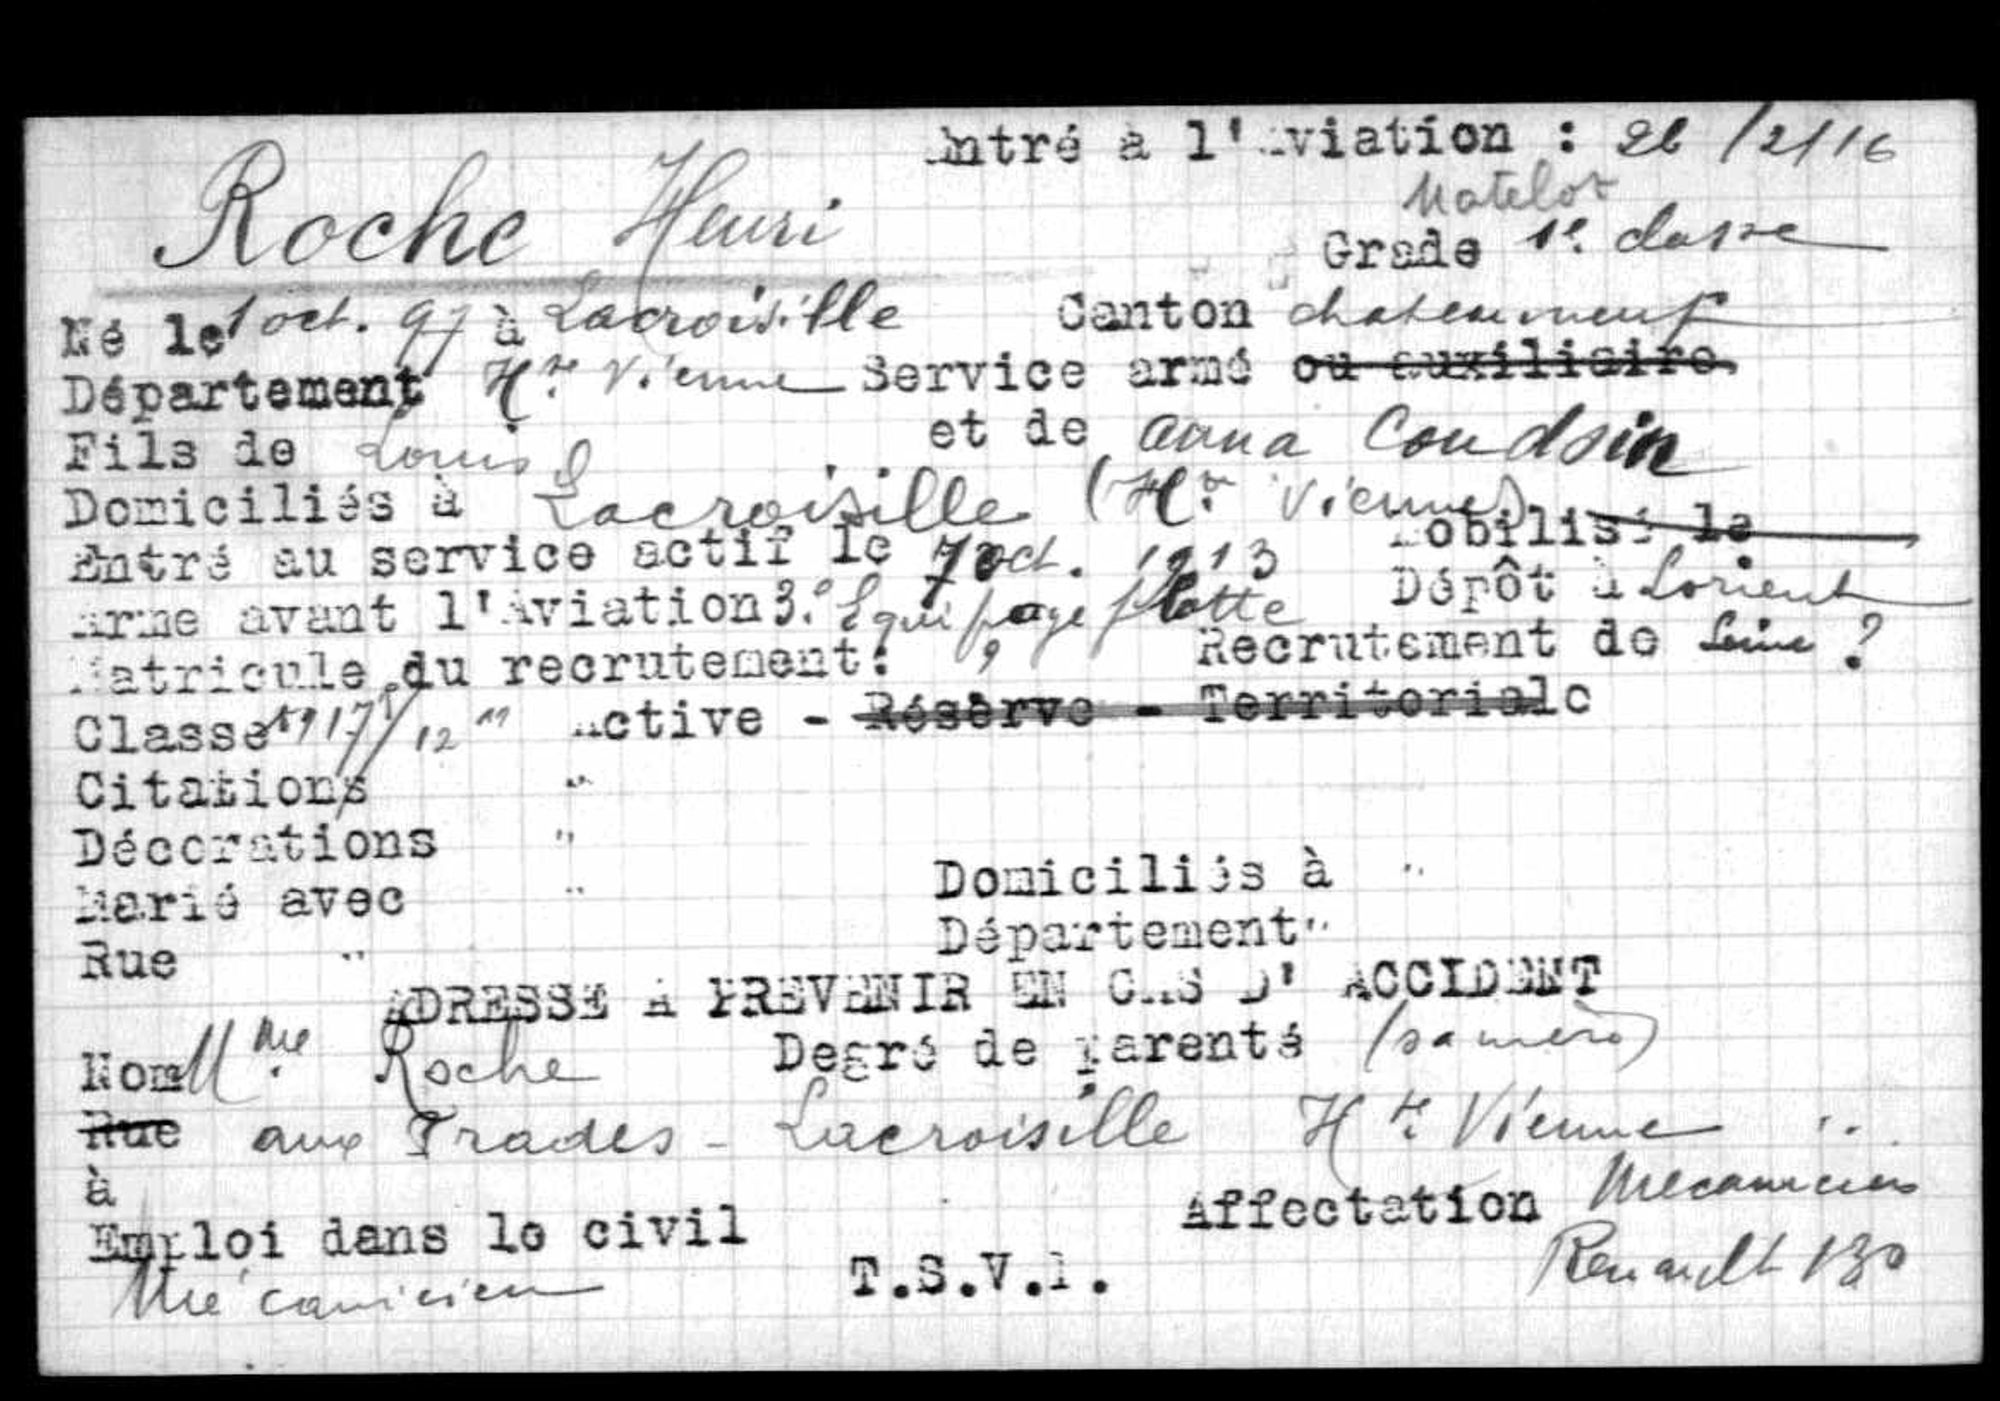 Entré à l'Aviation : 26/2/16
Roche Henri
Matelot
Grade 1e. classe
Né le 1 oct. 97 à Lacroisille Canton chateauneuf
Département Hte Vienne Service armé ou auxiliaire
Fils de Louis et de Anna Coudsin
Domiciliés à Lacroisille (Hte Vienne)
Entré au service actif le 7 oct. 1913 Mobilisé le
Arme avant l'Aviation 3.e Equipage flotte Dépôt à Lorient
Matricule du recrutement: ? Recrutement de Seine ?
Classe 1917/12 " Active - Réserve - Territoriale
Citations "
Décorations "
Marié avec " Domiciliés à "
Rue " Département "
ADRESSE A PREVENIR EN CAS D' ACCIDENT
Nom Mme Roche Degré de parenté (sa mère)
Rue aux Trades - Lacroisille Hte Vienne
à
Emploi dans le civil Affectation Mécanicien
Mécanicien T.S.V.P. Renault 130